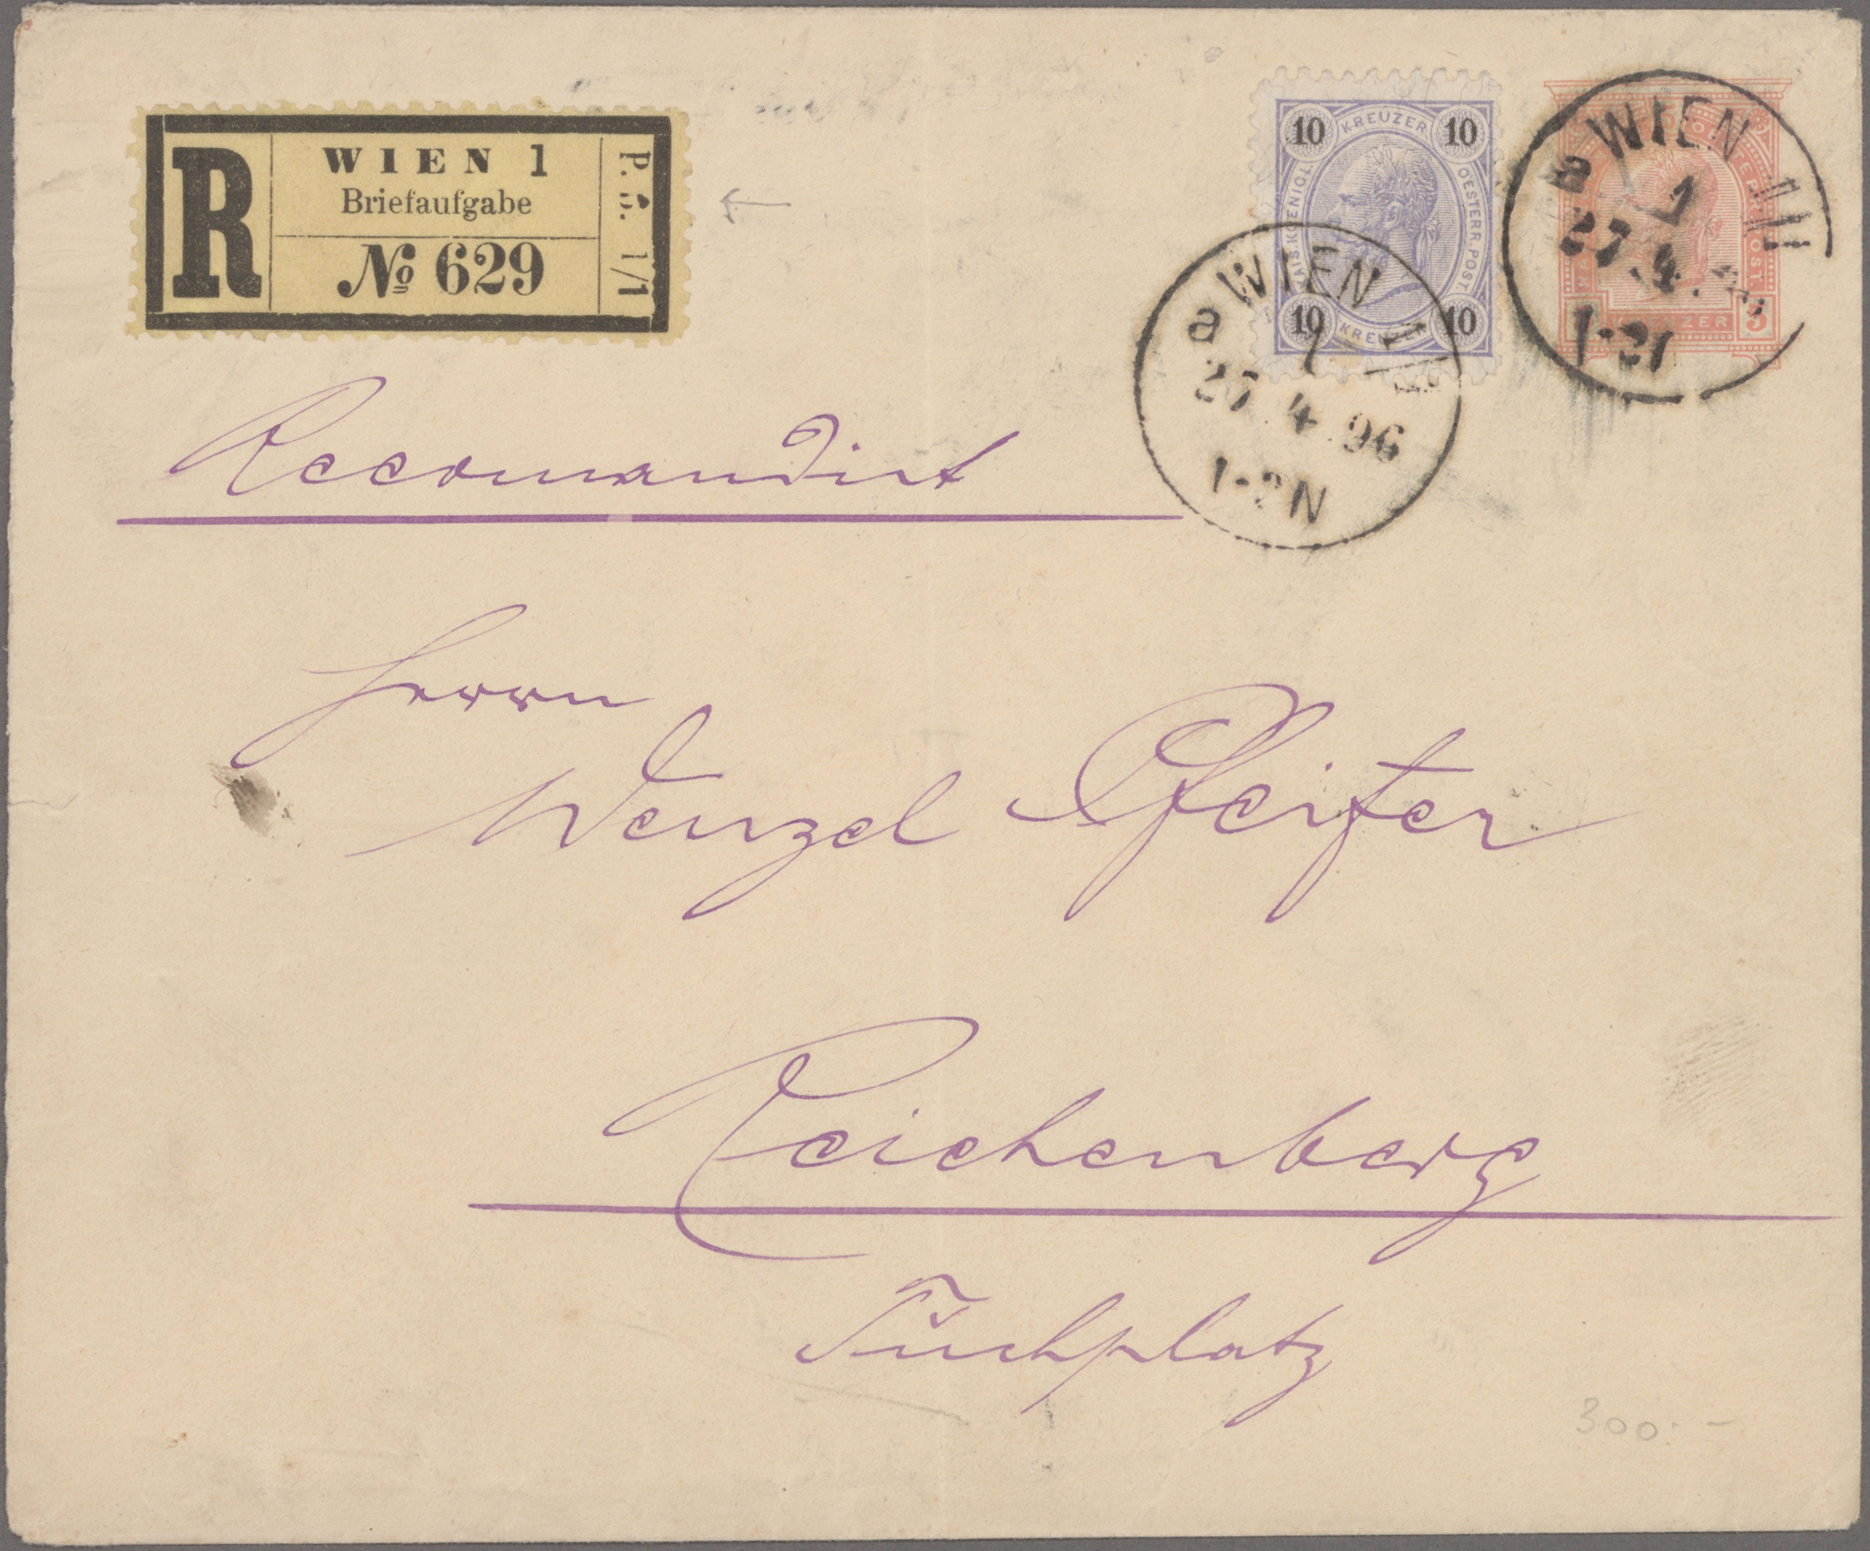 R
WIEN 1
Briefaufgabe
№ 629
P. S. 1/1
10 KREUZER 10
KAIS. KOENIGL. OESTERR. POST.
10 KREUZER 10
POST.
KREUZER 5
a WIEN
1
27.4.
1-2N
a WIEN
1
27.4.96
1-2N
Recomandirt
Herrn
Wenzel Pfeifer
Reichenberg
Tuchplatz
300.-